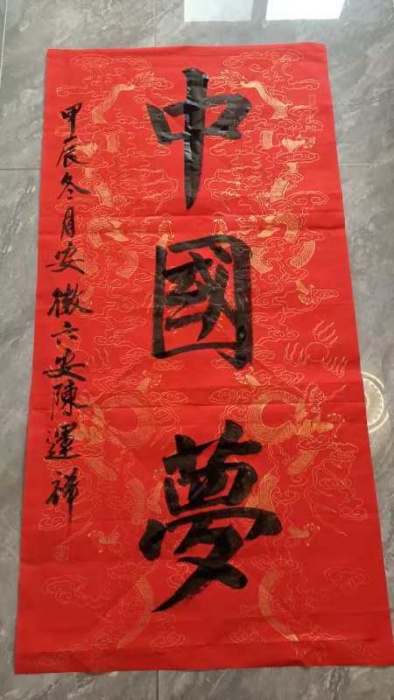 中國夢
甲辰冬月安徽六安陳運祥